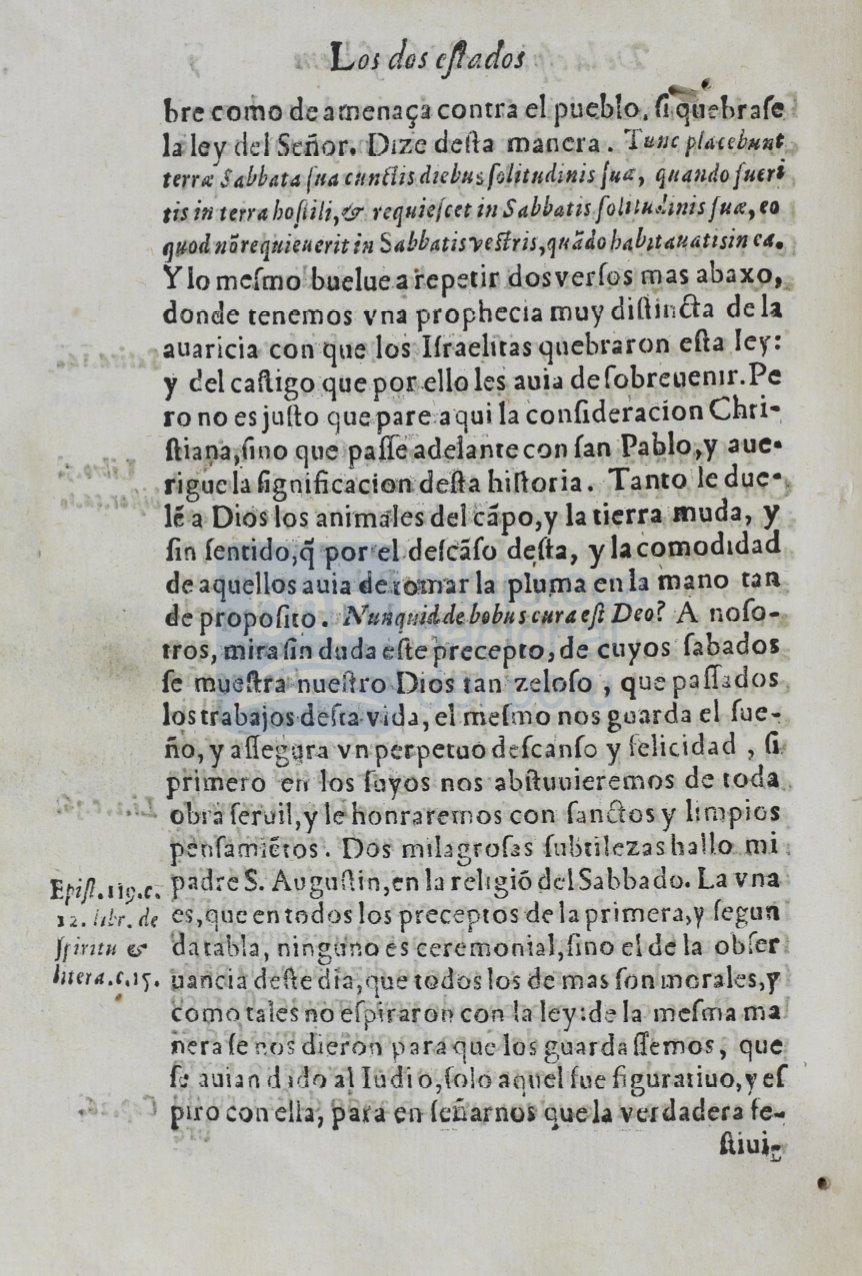 Los dos eſtados
bre como de amenaça contra el pueblo, ſi quebraſe
la ley del Señor. Dize deſta manera. Tunc placebunt
terræ Sabbata ſua cunctis diebus ſolitudinis ſuæ, quando fueri
tis in terra hoſtili, & requieſcet in Sabbatis ſolitudinis ſuæ, eo
quod nõ requieuerit in Sabbatis veſtris, quãdo habitauatis in ea.
Y lo meſmo buelue a repetir dos verſos mas abaxo,
donde tenemos vna prophecia muy diſtincta de la
auaricia con que los Iſraelitas quebraron eſta ley:
y del caſtigo que por ello les auia de ſobreuenir. Pe
ro no es juſto que pare aqui la conſideracion Chri-
ſtiana, ſino que paſſe adelante con ſan Pablo, y aue-
rigue la ſignificacion deſta hiſtoria. Tanto le due-
lẽ a Dios los animales del cãpo, y la tierra muda, y
ſin ſentido, q̃ por el deſcãſo deſta, y la comodidad
de aquellos auia de tomar la pluma en la mano tan
de propoſito. Nunquid de bobus cura eſt Deo? A noſo-
tros, mira ſin duda eſte precepto, de cuyos ſabados
ſe mueſtra nueſtro Dios tan zeloſo, que paſſados
los trabajos deſta vida, el meſmo nos guarda el ſue-
ño, y aſſegura vn perpetuo deſcanſo y felicidad, ſi
primero en los ſuyos nos abſtuuieremos de toda
obra ſeruil, y le honraremos con ſanctos y limpios
penſamiẽtos. Dos milagroſas ſubtilezas hallo mi
padre S. Auguſtin, en la religiõ del Sabbado. La vna
es, que en todos los preceptos de la primera, y ſegun
da tabla, ninguno es ceremonial, ſino el de la obſer
uancia deſte dia, que todos los de mas ſon morales, y
como tales no eſpiraron con la ley: de la meſma ma
nera ſe nos dieron para que los guardaſſemos, que
ſe auian dado al Iudio, ſolo aquel fue figuratiuo, y eſ
piro con ella, para enſeñarnos que la verdadera fe-
ſtiui-
Epiſt. 119. c.
12. libr. de
ſpiritu &
litera. c. 15.